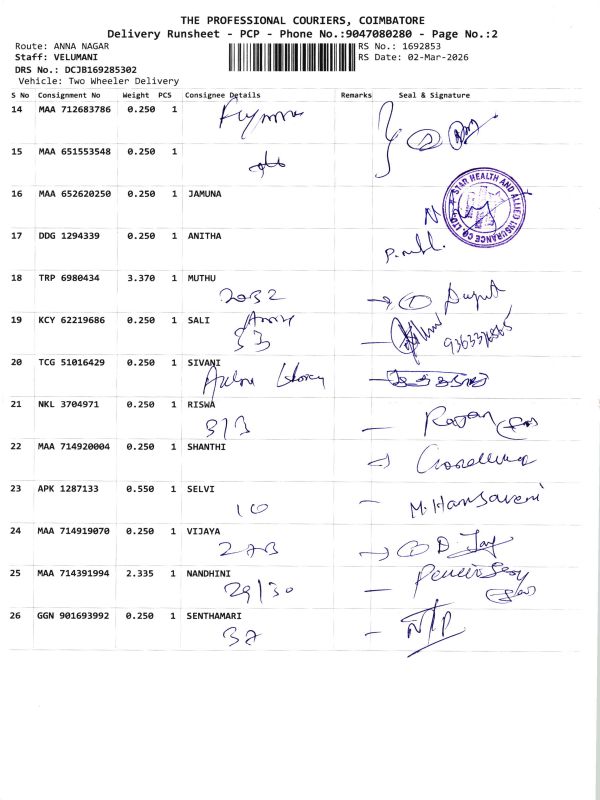 THE PROFESSIONAL COURIERS, COIMBATORE
Delivery Runsheet - PCP - Phone No.:9047080280 - Page No.:2
Route: ANNA NAGAR RS No.: 1692853
Staff: VELUMANI RS Date: 02-Mar-2026
DRS No.: DCJB169285302
Vehicle: Two Wheeler Delivery
S No Consignment No Weight PCS Consignee Details Remarks Seal & Signature
14 MAA 712683786 0.250 1
15 MAA 651553548 0.250 1
STAR HEALTH AND ALLIED INSURANCE CO. LTD.
16 MAA 652620250 0.250 1 JAMUNA
17 DDG 1294339 0.250 1 ANITHA
18 TRP 6980434 3.370 1 MUTHU
2032
19 KCY 62219686 0.250 1 SALI
S3
20 TCG 51016429 0.250 1 SIVANI
21 NKL 3704971 0.250 1 RISWA
3/3 Rajan
22 MAA 714920004 0.250 1 SHANTHI
23 APK 1287133 0.550 1 SELVI
10 M. Hansaveni
24 MAA 714919070 0.250 1 VIJAYA
27B D. Jay
25 MAA 714391994 2.335 1 NANDHINI
29/30
26 GGN 901693992 0.250 1 SENTHAMARI
37 NTP